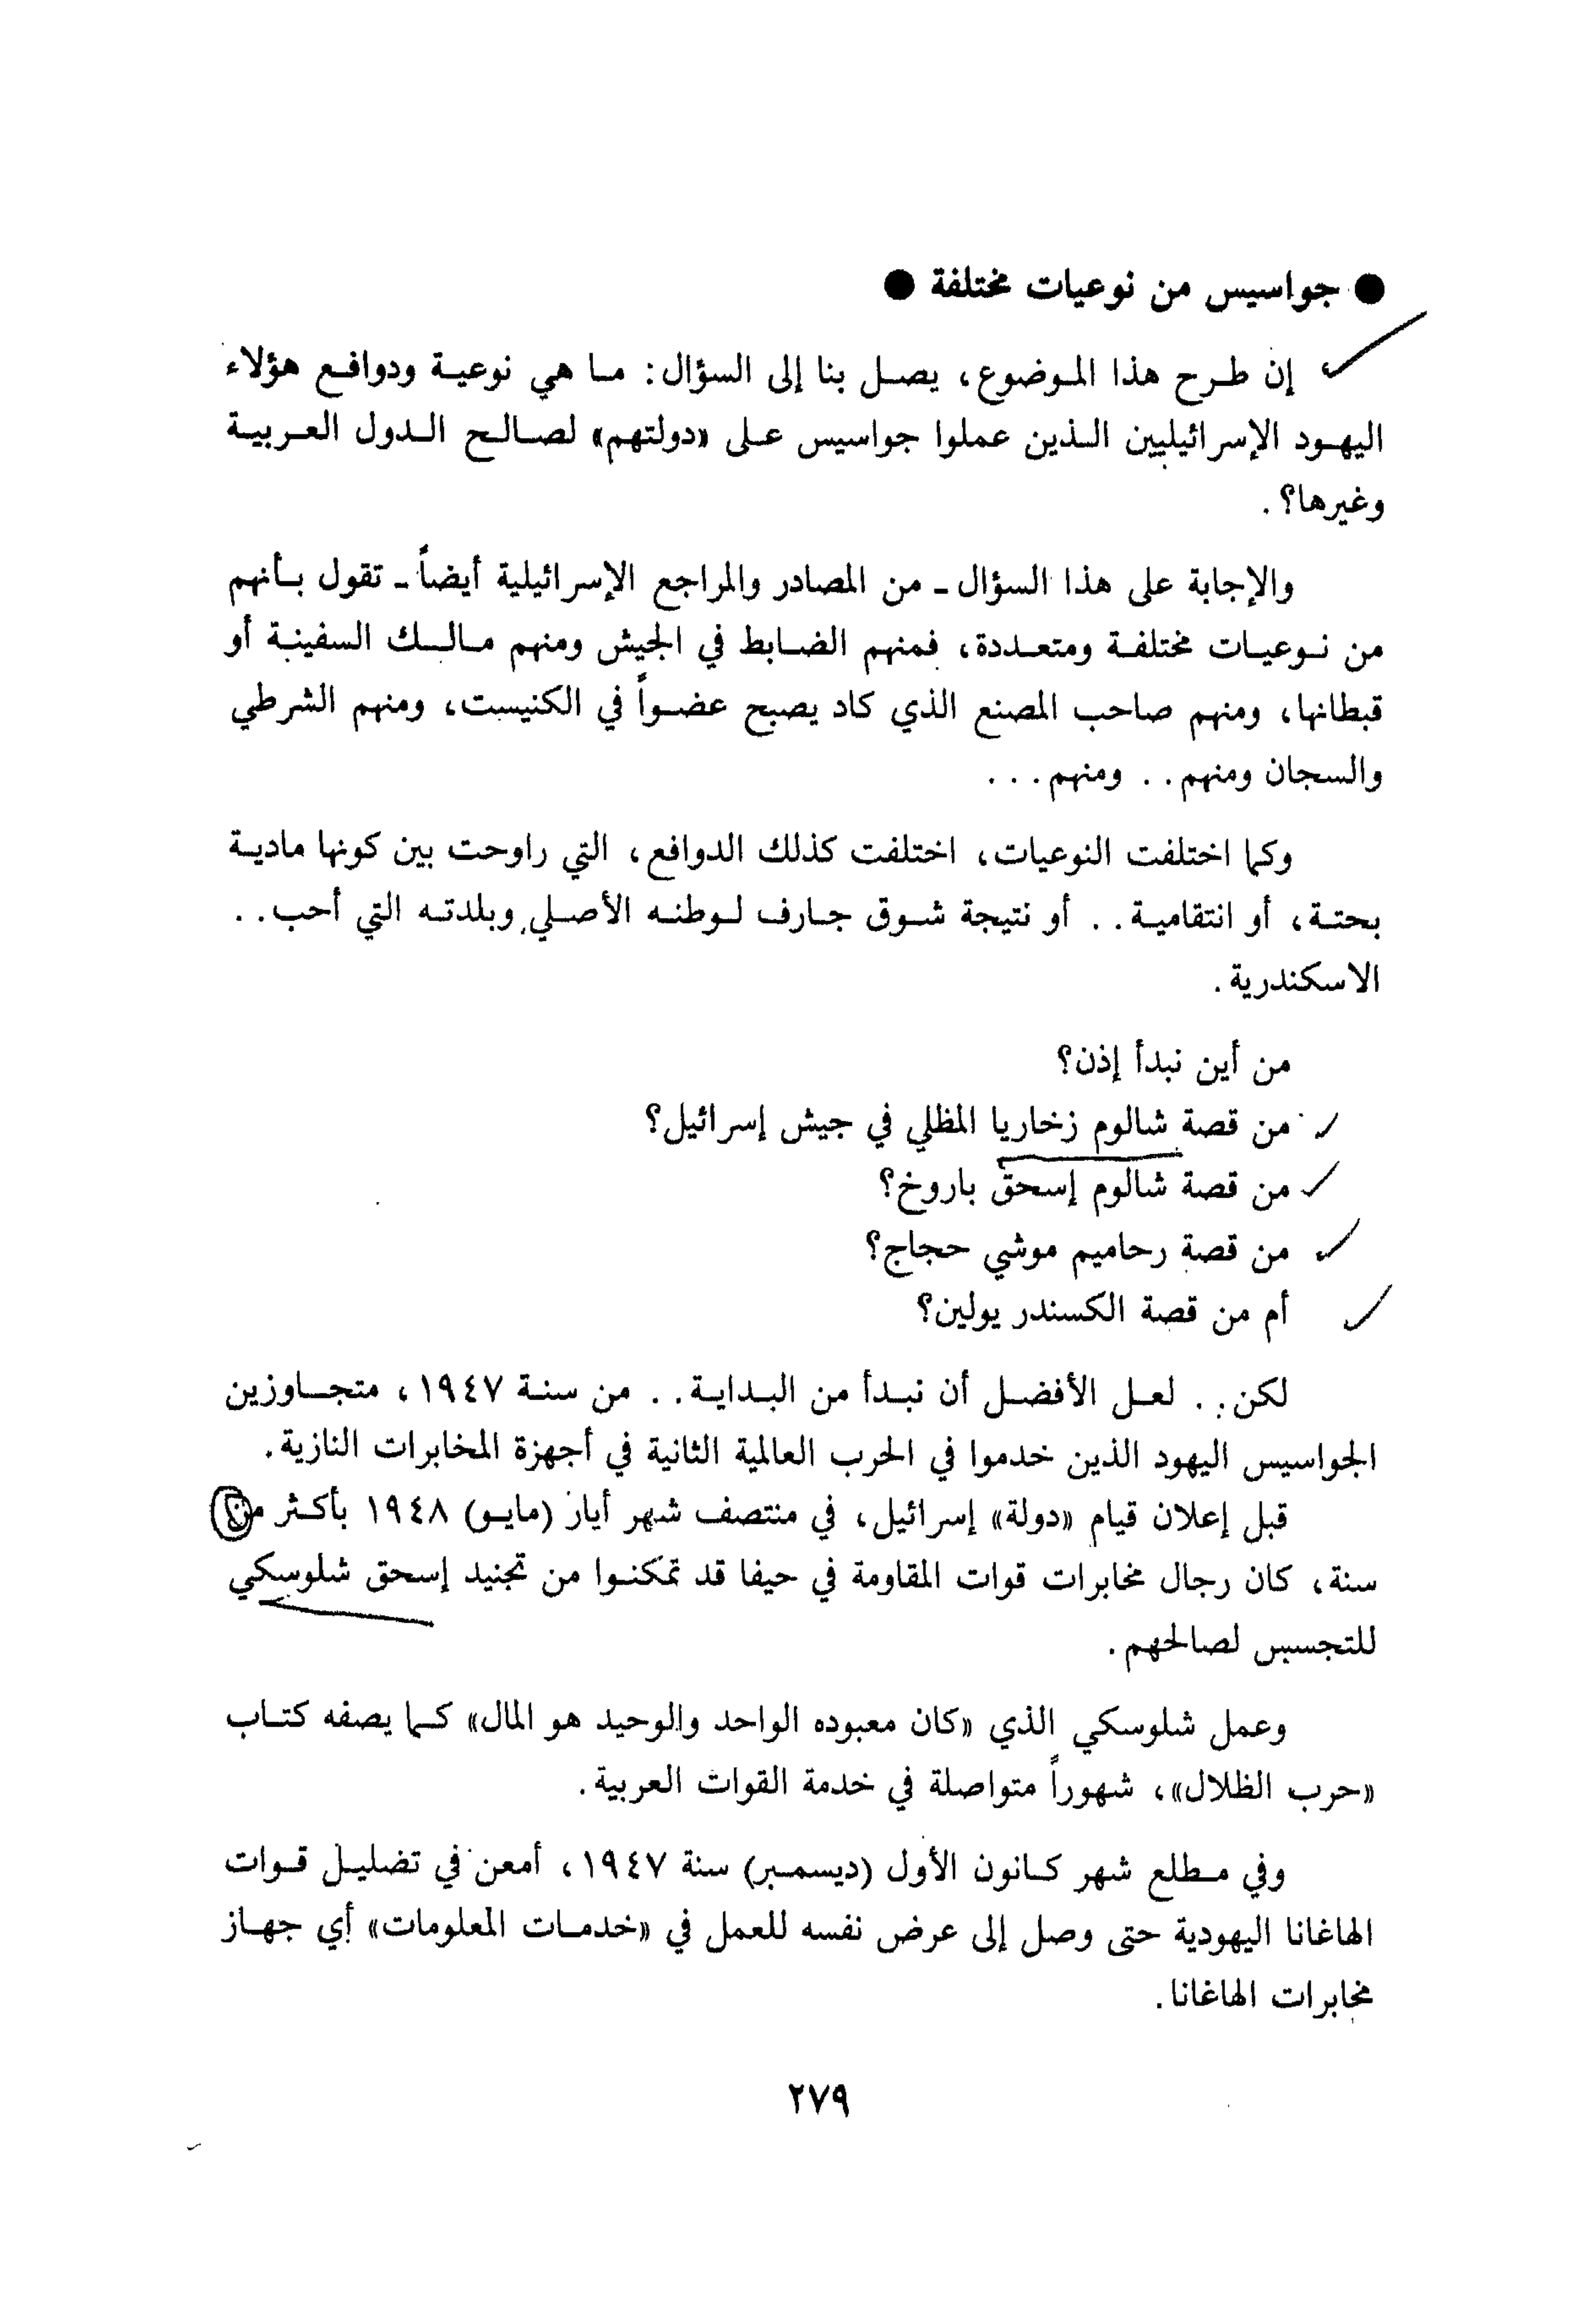 ● جواسيس من نوعيات مختلفة ●
إن طرح هذا الموضوع، يصل بنا إلى السؤال: ما هي نوعية ودوافع هؤلاء
اليهود الإسرائيليين الذين عملوا جواسيس على «دولتهم» لصالح الدول العربية
وغيرها؟.
والإجابة على هذا السؤال - من المصادر والمراجع الإسرائيلية أيضاً - تقول بأنهم
من نوعيات مختلفة ومتعددة، فمنهم الضابط في الجيش ومنهم مالك السفينة أو
قبطانها، ومنهم صاحب المصنع الذي كاد يصبح عضواً في الكنيست، ومنهم الشرطي
والسجان ومنهم.. ومنهم...
وكما اختلفت النوعيات، اختلفت كذلك الدوافع، التي راوحت بين كونها مادية
بحتة، أو انتقامية.. أو نتيجة شوق جارف لوطنه الأصلي وبلدته التي أحب..
الاسكندرية.
من أين نبدأ إذن؟
من قصة شالوم زخاريا المظلي في جيش إسرائيل؟
من قصة شالوم إسحق باروخ؟
من قصة رحاميم موشي حجاج؟
أم من قصة الكسندر يولين؟
لكن.. لعل الأفضل أن نبدأ من البداية.. من سنة ١٩٤٧، متجاوزين
الجواسيس اليهود الذين خدموا في الحرب العالمية الثانية في أجهزة المخابرات النازية.
قبل إعلان قيام «دولة» إسرائيل، في منتصف شهر أيار (مايو) ١٩٤٨ بأكثر من
سنة، كان رجال مخابرات قوات المقاومة في حيفا قد تمكنوا من تجنيد إسحق شلوسكي
للتجسس لصالحهم.
وعمل شلوسكي الذي «كان معبوده الواحد والوحيد هو المال» كما يصفه كتاب
«حرب الظلال»، شهوراً متواصلة في خدمة القوات العربية.
وفي مطلع شهر كانون الأول (ديسمبر) سنة ١٩٤٧، أمعن في تضليل قوات
الهاغانا اليهودية حتى وصل إلى عرض نفسه للعمل في «خدمات المعلومات» أي جهاز
مخابرات الهاغانا.
٢٧٩